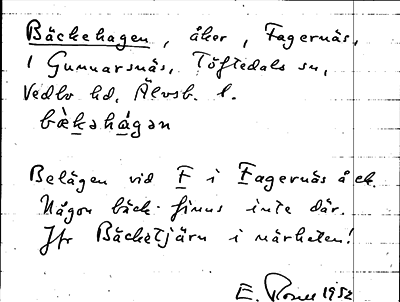 Bäckehagen, åker, Fagernäs,
1 Gunnarsnäs, Töftedals sn,
Vedbo hd, Älvsb. l.
bæ̀kəhágən
Belägen vid F i Fagernäs å ek.
Någon bäck finns inte där.
Jfr Bäcketjärn i närheten!
E. 1952